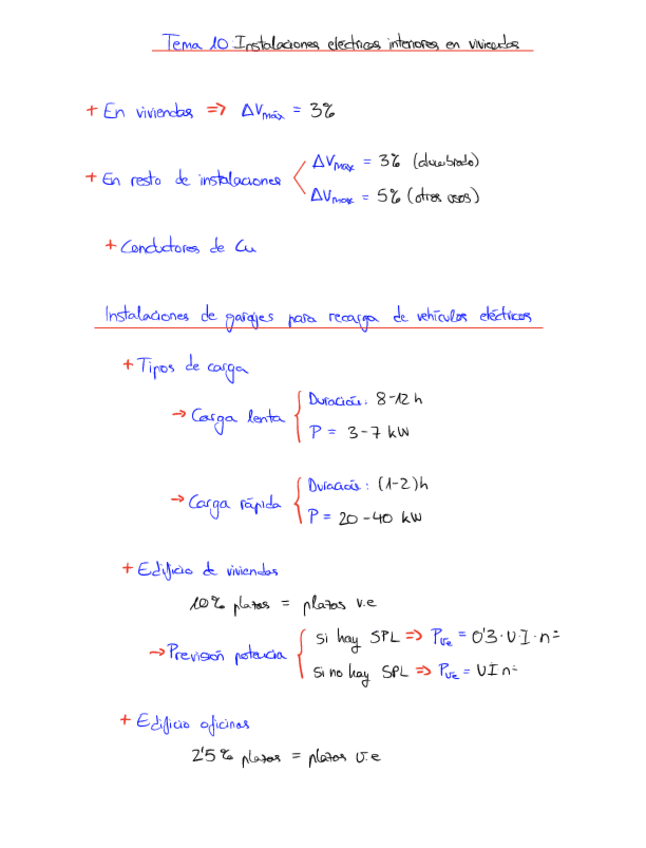 Tema 10 Instalaciones eléctricas interiores en viviendas
+ En viviendas => ΔVmáx = 3%
+ En resto de instalaciones
ΔVmax = 3% (alumbrado)
ΔVmax = 5% (otros usos)
+ Conductores de Cu
Instalaciones de garajes para recarga de vehículos eléctricos
+ Tipos de carga
→ Carga lenta
Duración: 8-12 h
P = 3-7 kW
→ Carga rápida
Duración: (1-2)h
P = 20-40 kW
+ Edificio de viviendas
10% plazas = plazas v.e
→ Previsión potencia
Si hay SPL => Pve = 0'3·U·I·nº
Si no hay SPL => Pve = U I nº
+ Edificio oficinas
2'5% plazas = plazas v.e